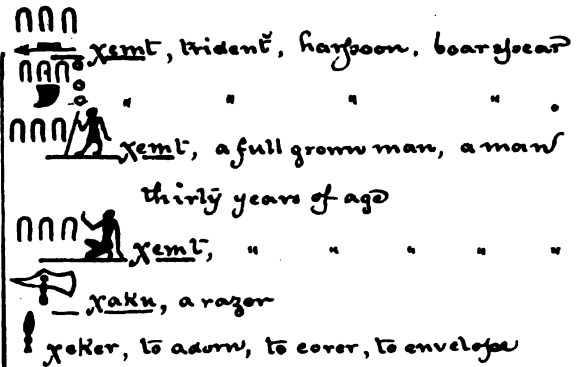 𓎆𓎆𓎆 χemt, trident, harpoon, boarspear
𓎆𓎆𓎆 " " " " .
𓎆𓎆𓎆 χemt, a full grown man, a man
thirty years of age
𓎆𓎆𓎆 χemt, " " " " "
χaku, a razor
χeker, to adorn, to cover, to envelope